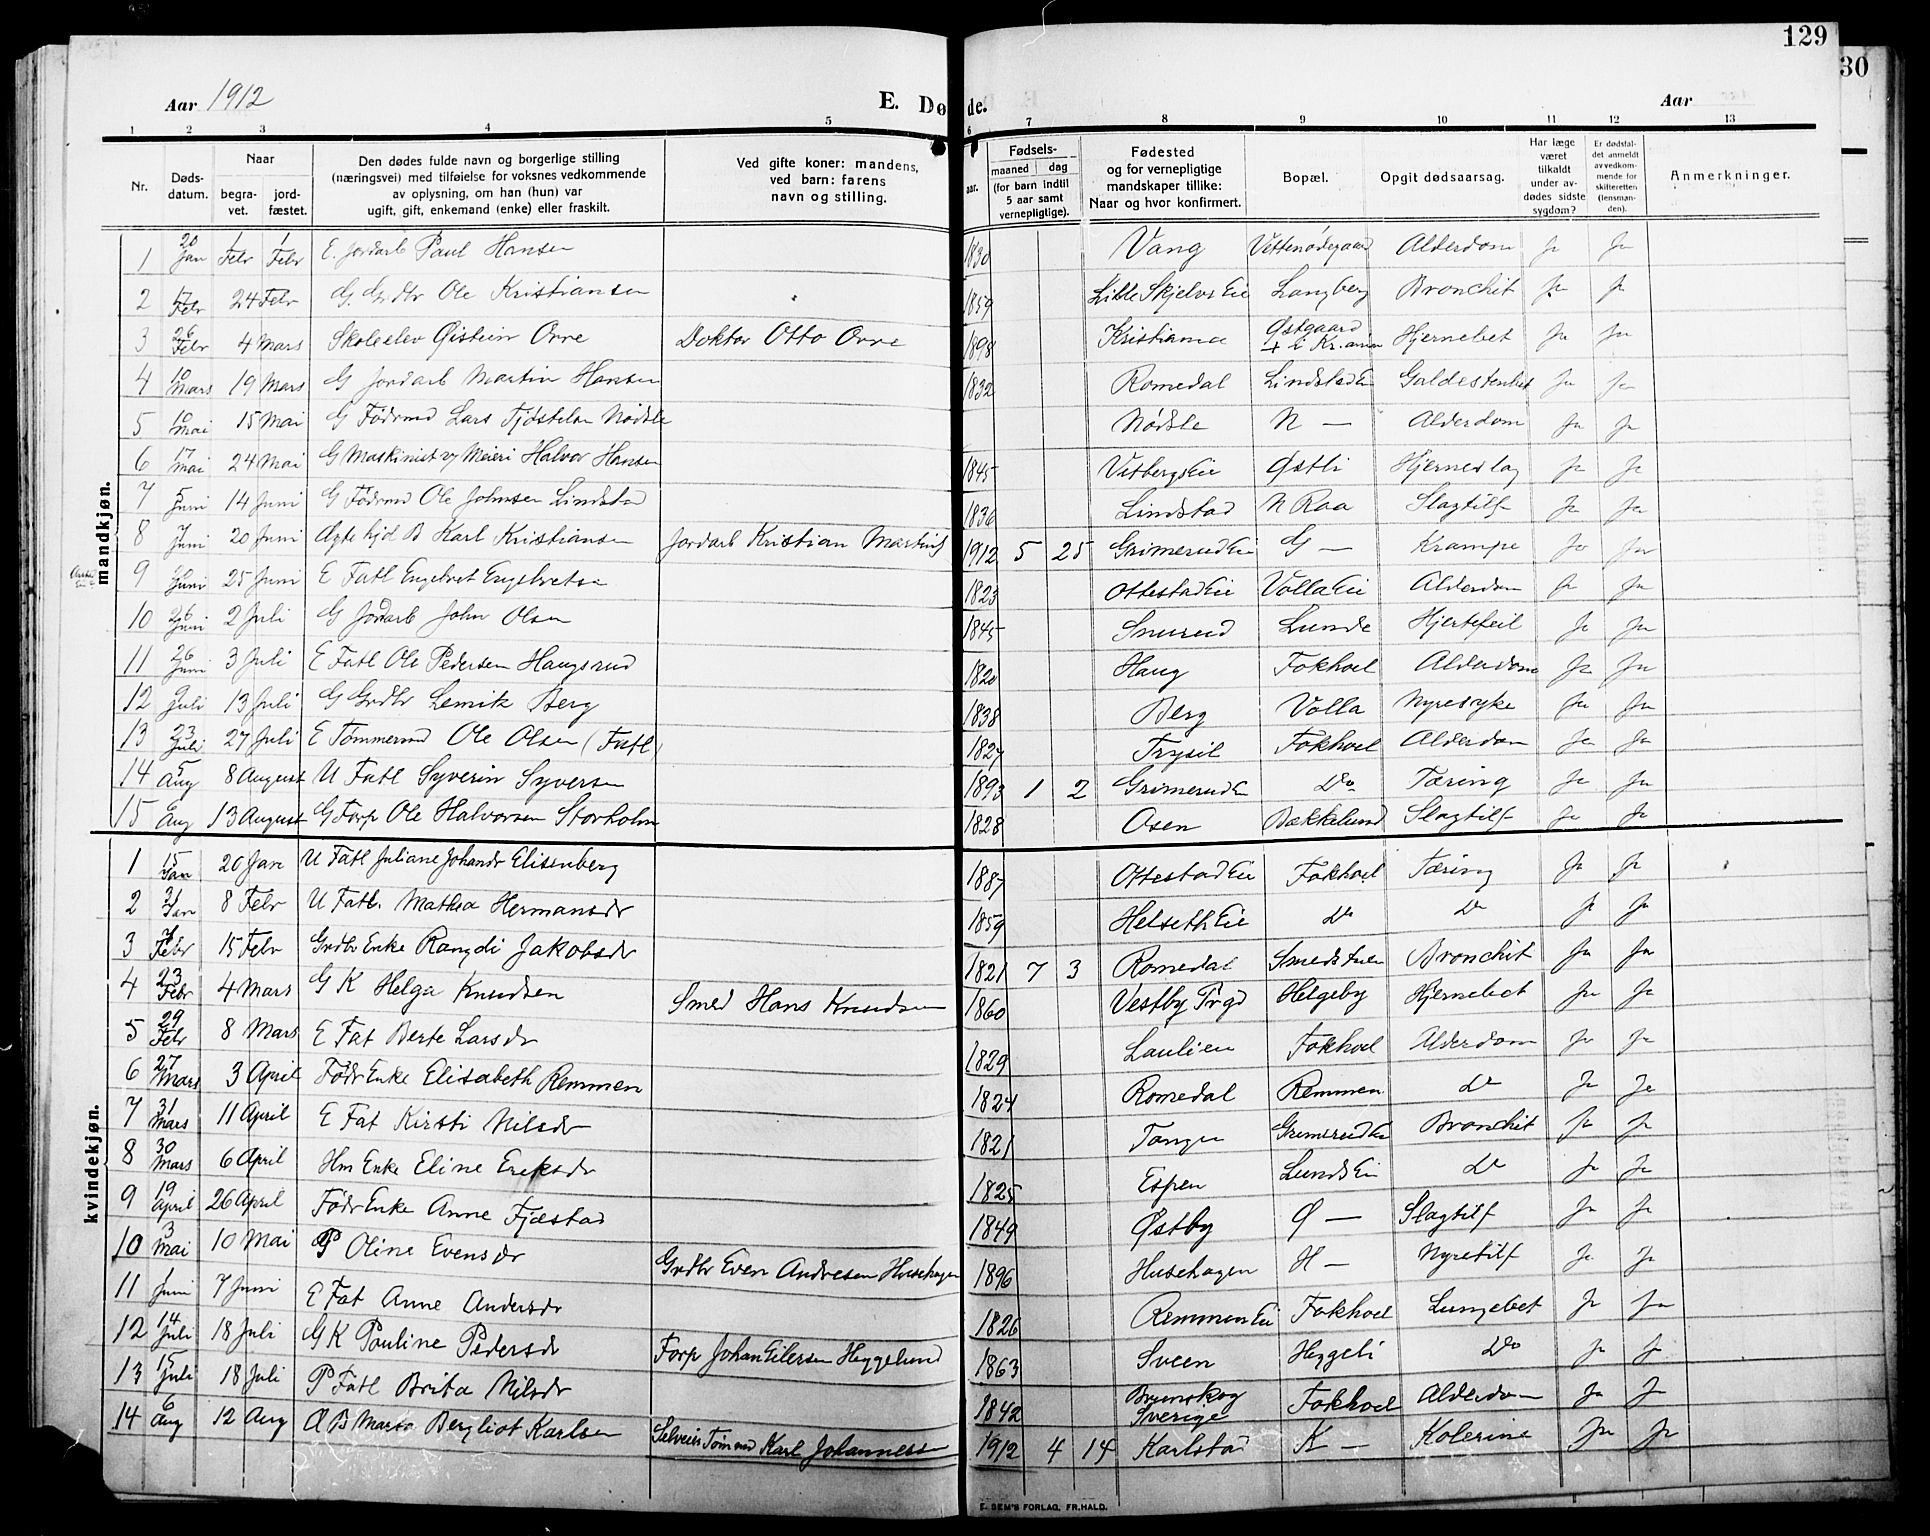 129
30
Aar 1912
E. Døde.
Aar
1 2 3 4 5 6 7 8 9 10 11 12 13
Nr.
Døds-
datum.
Naar
begra-
vet.
jord-
fæstet.
Den dødes fulde navn og borgerlige stilling
(næringsvei) med tilføielse for voksnes vedkommende
av oplysning, om han (hun) var
ugift, gift, enkemand (enke) eller fraskilt.
Ved gifte koner: mandens,
ved barn: farens
navn og stilling.
aar.
Fødsels-
maaned dag
(for barn indtil
5 aar samt
vernepligtige).
Fødested
og for vernepligtige
mandskaper tillike:
Naar og hvor konfirmert.
Bopæl.
Opgit dødsaarsag.
Har læge
været
tilkaldt
under av-
dødes sidste
sygdom?
Er dødsfal-
det anmeldt
av vedkom-
mende for
skifteretten
(lensman-
den).
Anmerkninger.
mandkjøn.
1 20 Jan 1 Febr 1 Febr E. Jordarb Paul Hansen 1830 Vang Vettenødegaard Alderdom Ja Ja
2 17 Febr 24 Febr G. Grdbr Ole Kristiansen 1859 Lille Skjelvs Eie Langberg Bronchit Ja Ja
3 26 Febr 4 Mars Skoleelev Øistein Ovre Doktor Otto Ovre 1898 Kristiania Østgaard + i Kr.ania Hjernebet Ja Ja
4 10 Mars 19 Mars G Jordarb Martin Hansen 1832 Romedal Lindstad Ei Galdestenbet Ja Ja
5 10 Mai 15 Mai G Fødrmd Lars Fjøstelen Nødsle Nødsle N — Alderdom Ja Ja
6 17 Mai 24 Mai G Maskinist v Meieri Halvor Hansen 1845 Vestbergs Eie Østli Hjerneslag Ja Ja
7 5 Juni 14 Juni G Fødrmd Ole Johnsen Lindstad 1836 Lindstad N Raa Slagtilf Ja Ja
8 7 Juni 20 Juni Ægte hjd B Karl Kristiansen Jordarb Kristian Martins 1912 5 25 Grimerud Eie G — Krampe Ja Ja
9 Juni 25 Juni E Fatl Engebret Engebretsn 1823 Ottestad Eie Volla Eie Alderdom Ja Ja
10 26 Juni 2 Juli G Jordarb John Olsen 1845 Snurud Lunde Hjertefeil Ja Ja
11 26 Juni 3 Juli E Fatl Ole Pedersen Haugsrud 1820 Haug Fokhoel Alderdom Ja Ja
12 Juli 13 Juli G Grdbr Lemik Berg 1838 Berg Volla Nyresyke Ja Ja
13 23 Juli 27 Juli E Tømmermd Ole Olsen (Fatl) 1827 Trysil Fokhoel Alderdom Ja Ja
14 5 Aug 8 August U Fatl Syverin Syversen 1893 1 2 Grimerud Ei Do Tæring Ja Ja
15 6 Aug 13 August G Forp Ole Halvorsen Storholm 1828 Osen Bækkelund Slagtilf Ja Ja
kvindekjøn.
1 15 Jan 20 Jan U Fatl Juliane Johandr Elisenberg 1887 Ottestad Eie Fokhoel Tæring Ja Ja
2 31 Jan 8 Febr U Fatl. Mathea Hermansdr 1859 Helseth Eie Do Do Ja Ja
3 7 Febr 15 Febr Grdbr Enke Rangdi Jakobsdr 1821 7 3 Romedal Smedstuen Bronchit Ja Ja
4 23 Febr 4 Mars G K Helga Knudsen Smed Hans Knudsen 1860 Vestby Prgd Helgeby Hjernebet Ja Ja
5 29 Febr 8 Mars E Fat Berte Larsdr 1829 Laulien Fokhoel Alderdom Ja Ja
6 27 Mars 3 April Fødr Enke Elisabeth Remmen 1824 Romedal Remmen Do Ja Ja
7 31 Mars 11 April E Fat Kirsti Nilsdr 1821 Tangen Grimerud Ei Bronchit Ja Ja
8 30 Mars 6 April Hm Enke Eline Eriksdr 1825 Espen Lunds Ei Do Ja Ja
9 19 April 26 April Fødr Enke Anne Fjæstad 1849 Østby Ø — Slagtilf Ja Ja
10 3 Mai 10 Mai P Oline Evensdr Grdbr Even Andresen Husehagen 1896 Husehagen H — Nyretilf Ja Ja
11 1 Juni 7 Juni E Fat Anne Andersdr 1826 Remmen Eie Fokhoel Lungebet Ja Ja
12 14 Juli 18 Juli G K Pauline Pedersdr Forp Johan Eilersen Heggelund 1863 Sveen Heggeli Do Ja Ja
13 15 Juli 18 Juli P Fatl Brita Nilsdr 1842 Brunskog Sverige Fokhoel Alderdom Ja Ja
14 6 Aug 12 Aug Æ B Marta Bergliot Karlsen Selveier Tømmd Karl Johannessn 1912 4 14 Karlstad K — Kolerine Ja Ja
E. SEM'S FORLAG, FR.HALD.